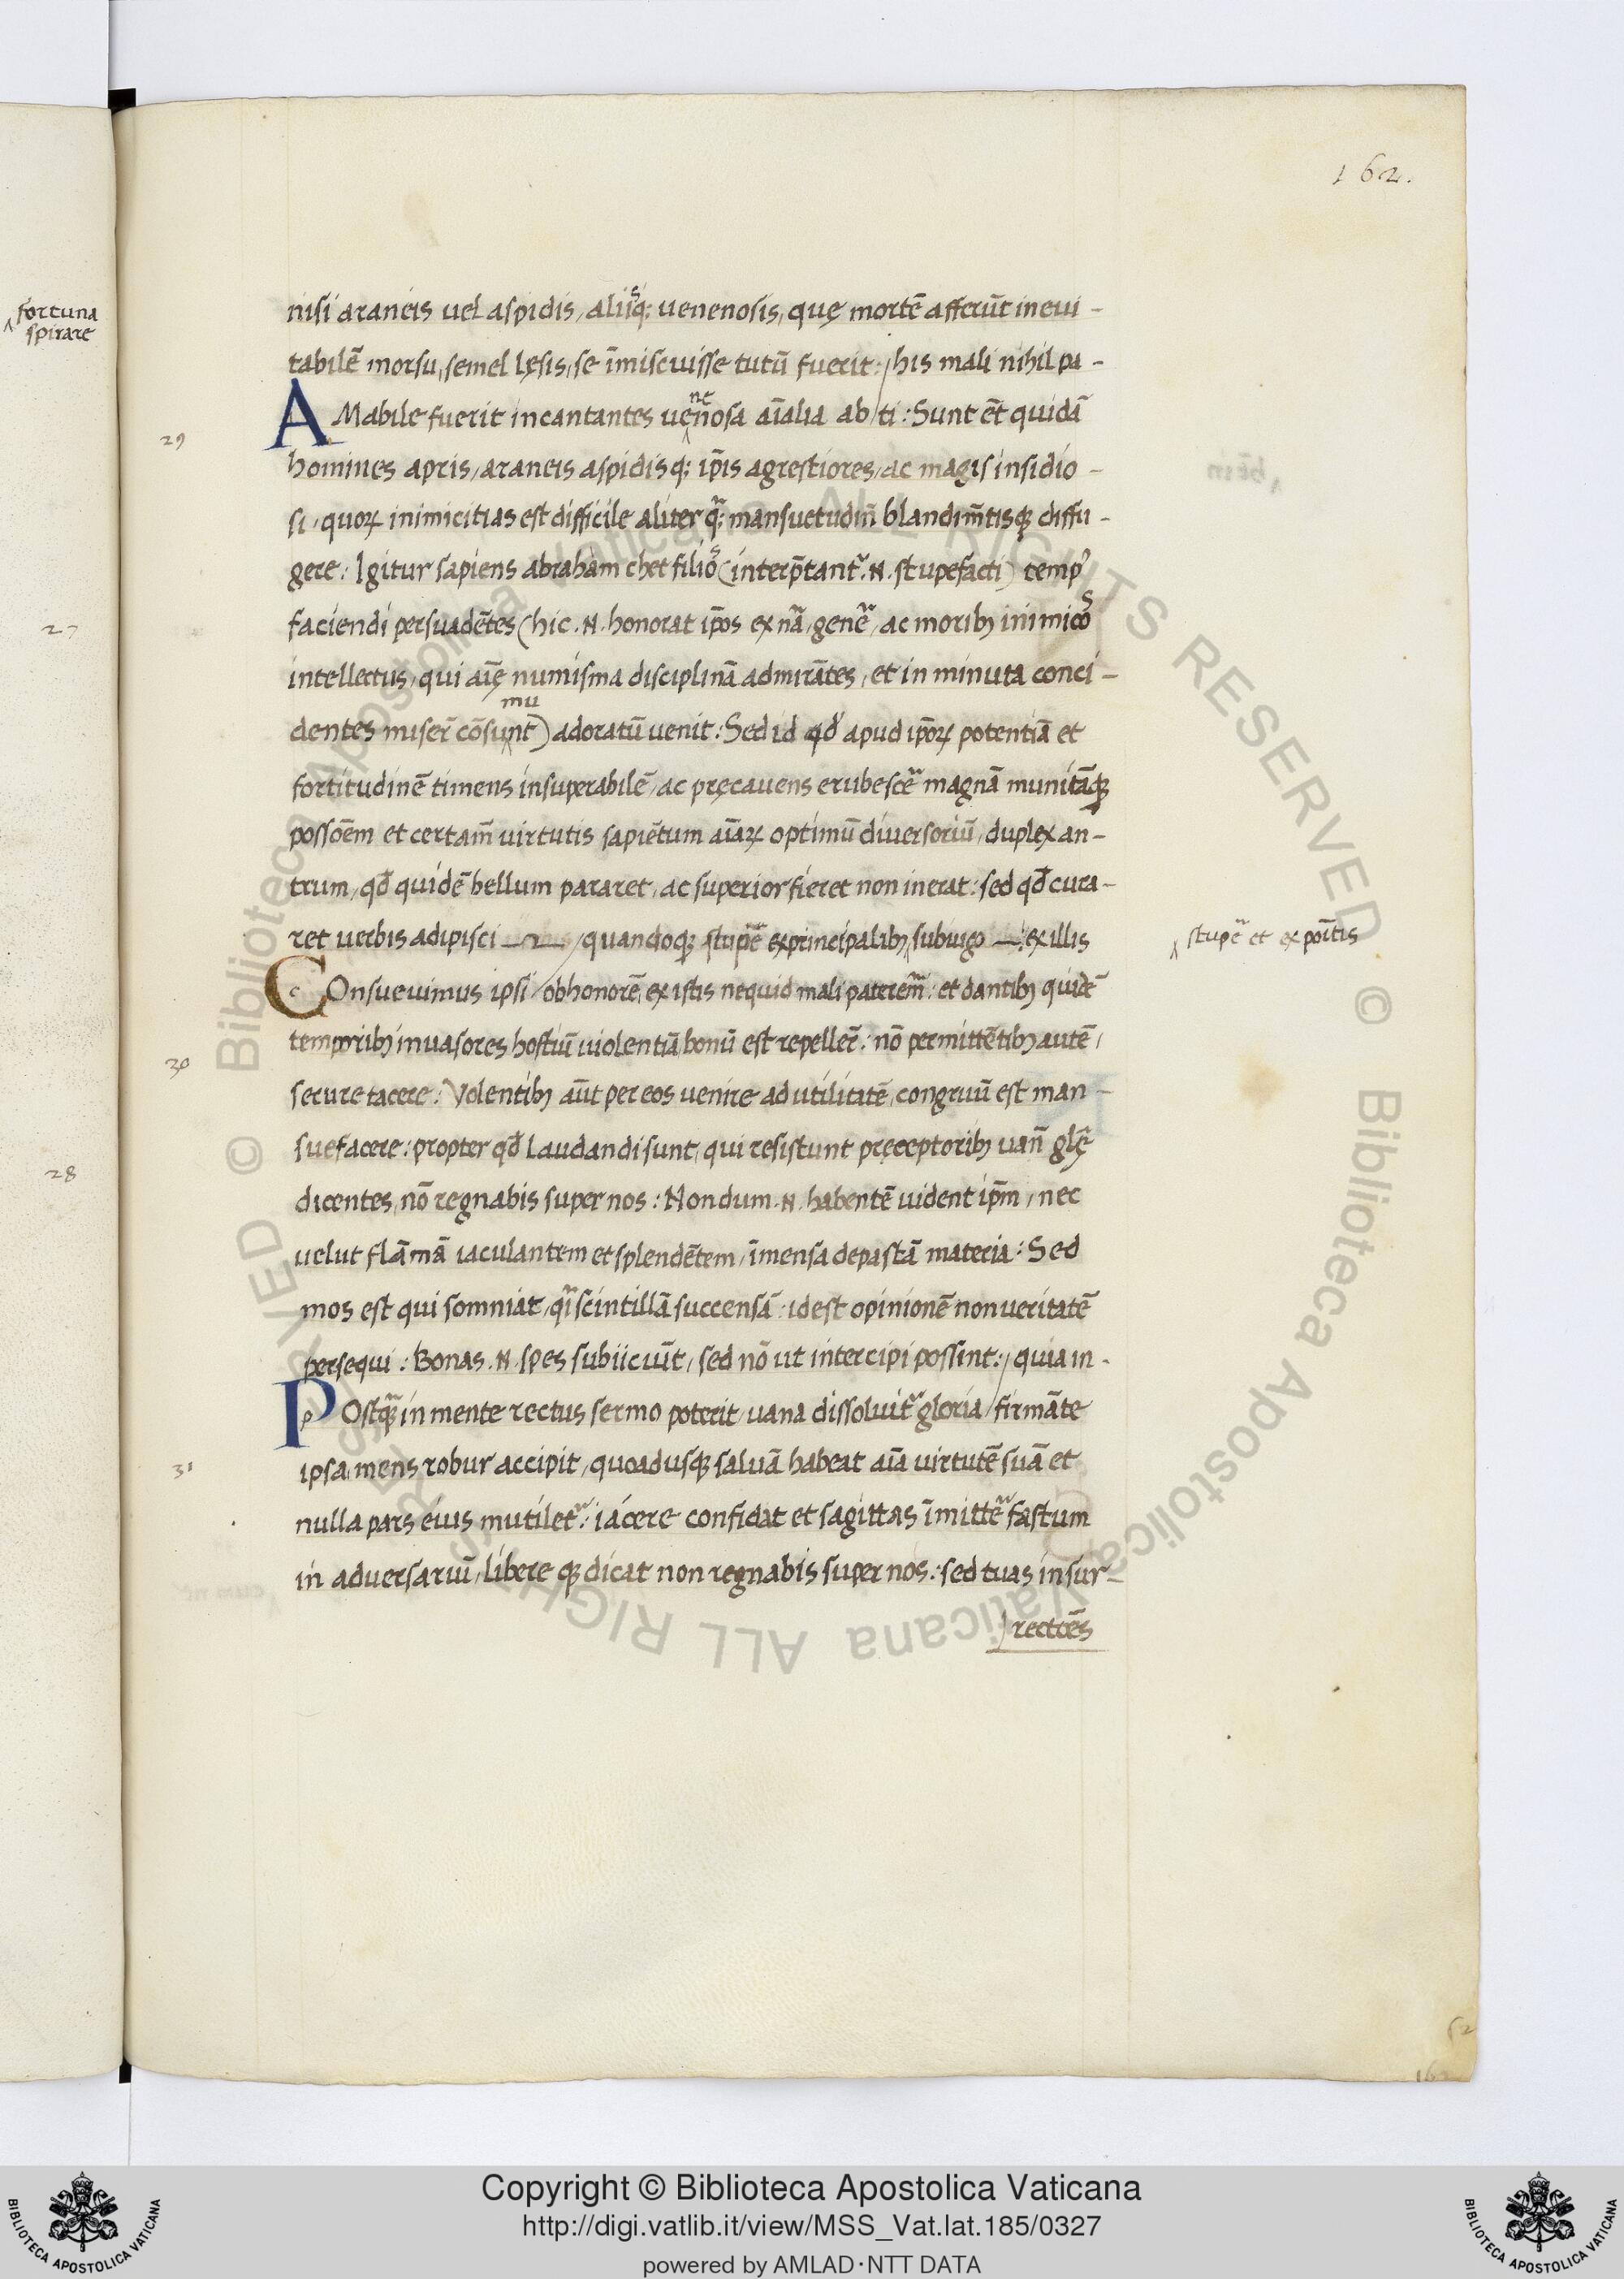 fortuna
spirare
27
28
162.
nisi araneis uel aspidis, aliisq; uenenosis, quę mortē afferūt ineui-
tabilē morsu, semel lęsis, se īmiscuisse tutū fuerit: his mali nihil pa-
29
AMabile fuerit incantantes uenenosa aīalia ab ti: Sunt ēt quidā
homines apris, araneis aspidisq; ip̄is agrestiores, ac magis insidio-
si, quoꝝ inimicitias est difficile aliter q̄; mansuetudin̄ blandim̄tisq; diffu-
gere: Igitur sapiens abraham chet filios (interp̄tant᷑ .N. stupefacti) temp᾽
faciendi persuadētes (hic .N. honorat ip̄os ex nā, gene᷑, ac moribꝫ inimicos
intellectus, qui aīę numisma disciplinā admirātes, et in minuta conci-
dentes miser̄ cōsumunt) adoratū uenit: Sed id qđ apud ip̄oꝝ potentiā et
fortitudinē timens insuperabilē, ac pręcauens erubesce᷑ magnā munitāq;
possōem et certam̄ virtutis sapiētum aīaꝝ optimū diuersoriū, duplex an-
trum, qđ quidē bellum pararet, ac superior fieret non inerat: sed qđ cura-
ret uerbis adipisci quandoq; stupe᷑ ex principalibꝫ, subiugo : ex illis
stupe᷑ et ex poītis
COnsueuimus ipsi ob honorē, ex istis nequid mali paterem᷑: et dantibꝫ quidē
30
temporibꝫ inuasores hostiū uiolentiā bonū est repeller̄: nō permittētibꝫ autē,
secure tacere: Volentibꝫ aūt per eos uenire ad utilitatē, congruū est man-
suefacere: propter qđ laudandi sunt, qui resistunt pręceptoribꝫ uan̄ glę̄
dicentes, nō regnabis super nos: Nondum .N. habentē uident ip̄m, nec
uelut flāmā iaculantem et splendētem, īmensa depastā materia: Sed
mos est qui somniat, q̄ scintillā succensā: idest opinionē non ueritatē
persequi: Bonas .N. spes subiiciūt, sed nō ut intercipi possint: quia in-
POstq̄ in mente rectus sermo poterit, uana dissoluit᷑ gloria firmāte
31
ipsa mens robur accipit, quoadusq; saluā habeat aīa virtutē suā et
nulla pars eius mutilet᷑: iacere confidat et sagittas īmitte᷑ fastum
in aduersariū, libere q; dicat non regnabis super nos: sed tuas insur-
rectōes
Copyright © Biblioteca Apostolica Vaticana
http://digi.vatlib.it/view/MSS_Vat.lat.185/0327
powered by AMLAD·NTT DATA
BIBLIOTECA APOSTOLICA VATICANA
BIBLIOTECA APOSTOLICA VATICANA
© Biblioteca Apostolica Vaticana ALL RIGHTS RESERVED © Biblioteca Apostolica Vaticana ALL RIGHTS RESERVED